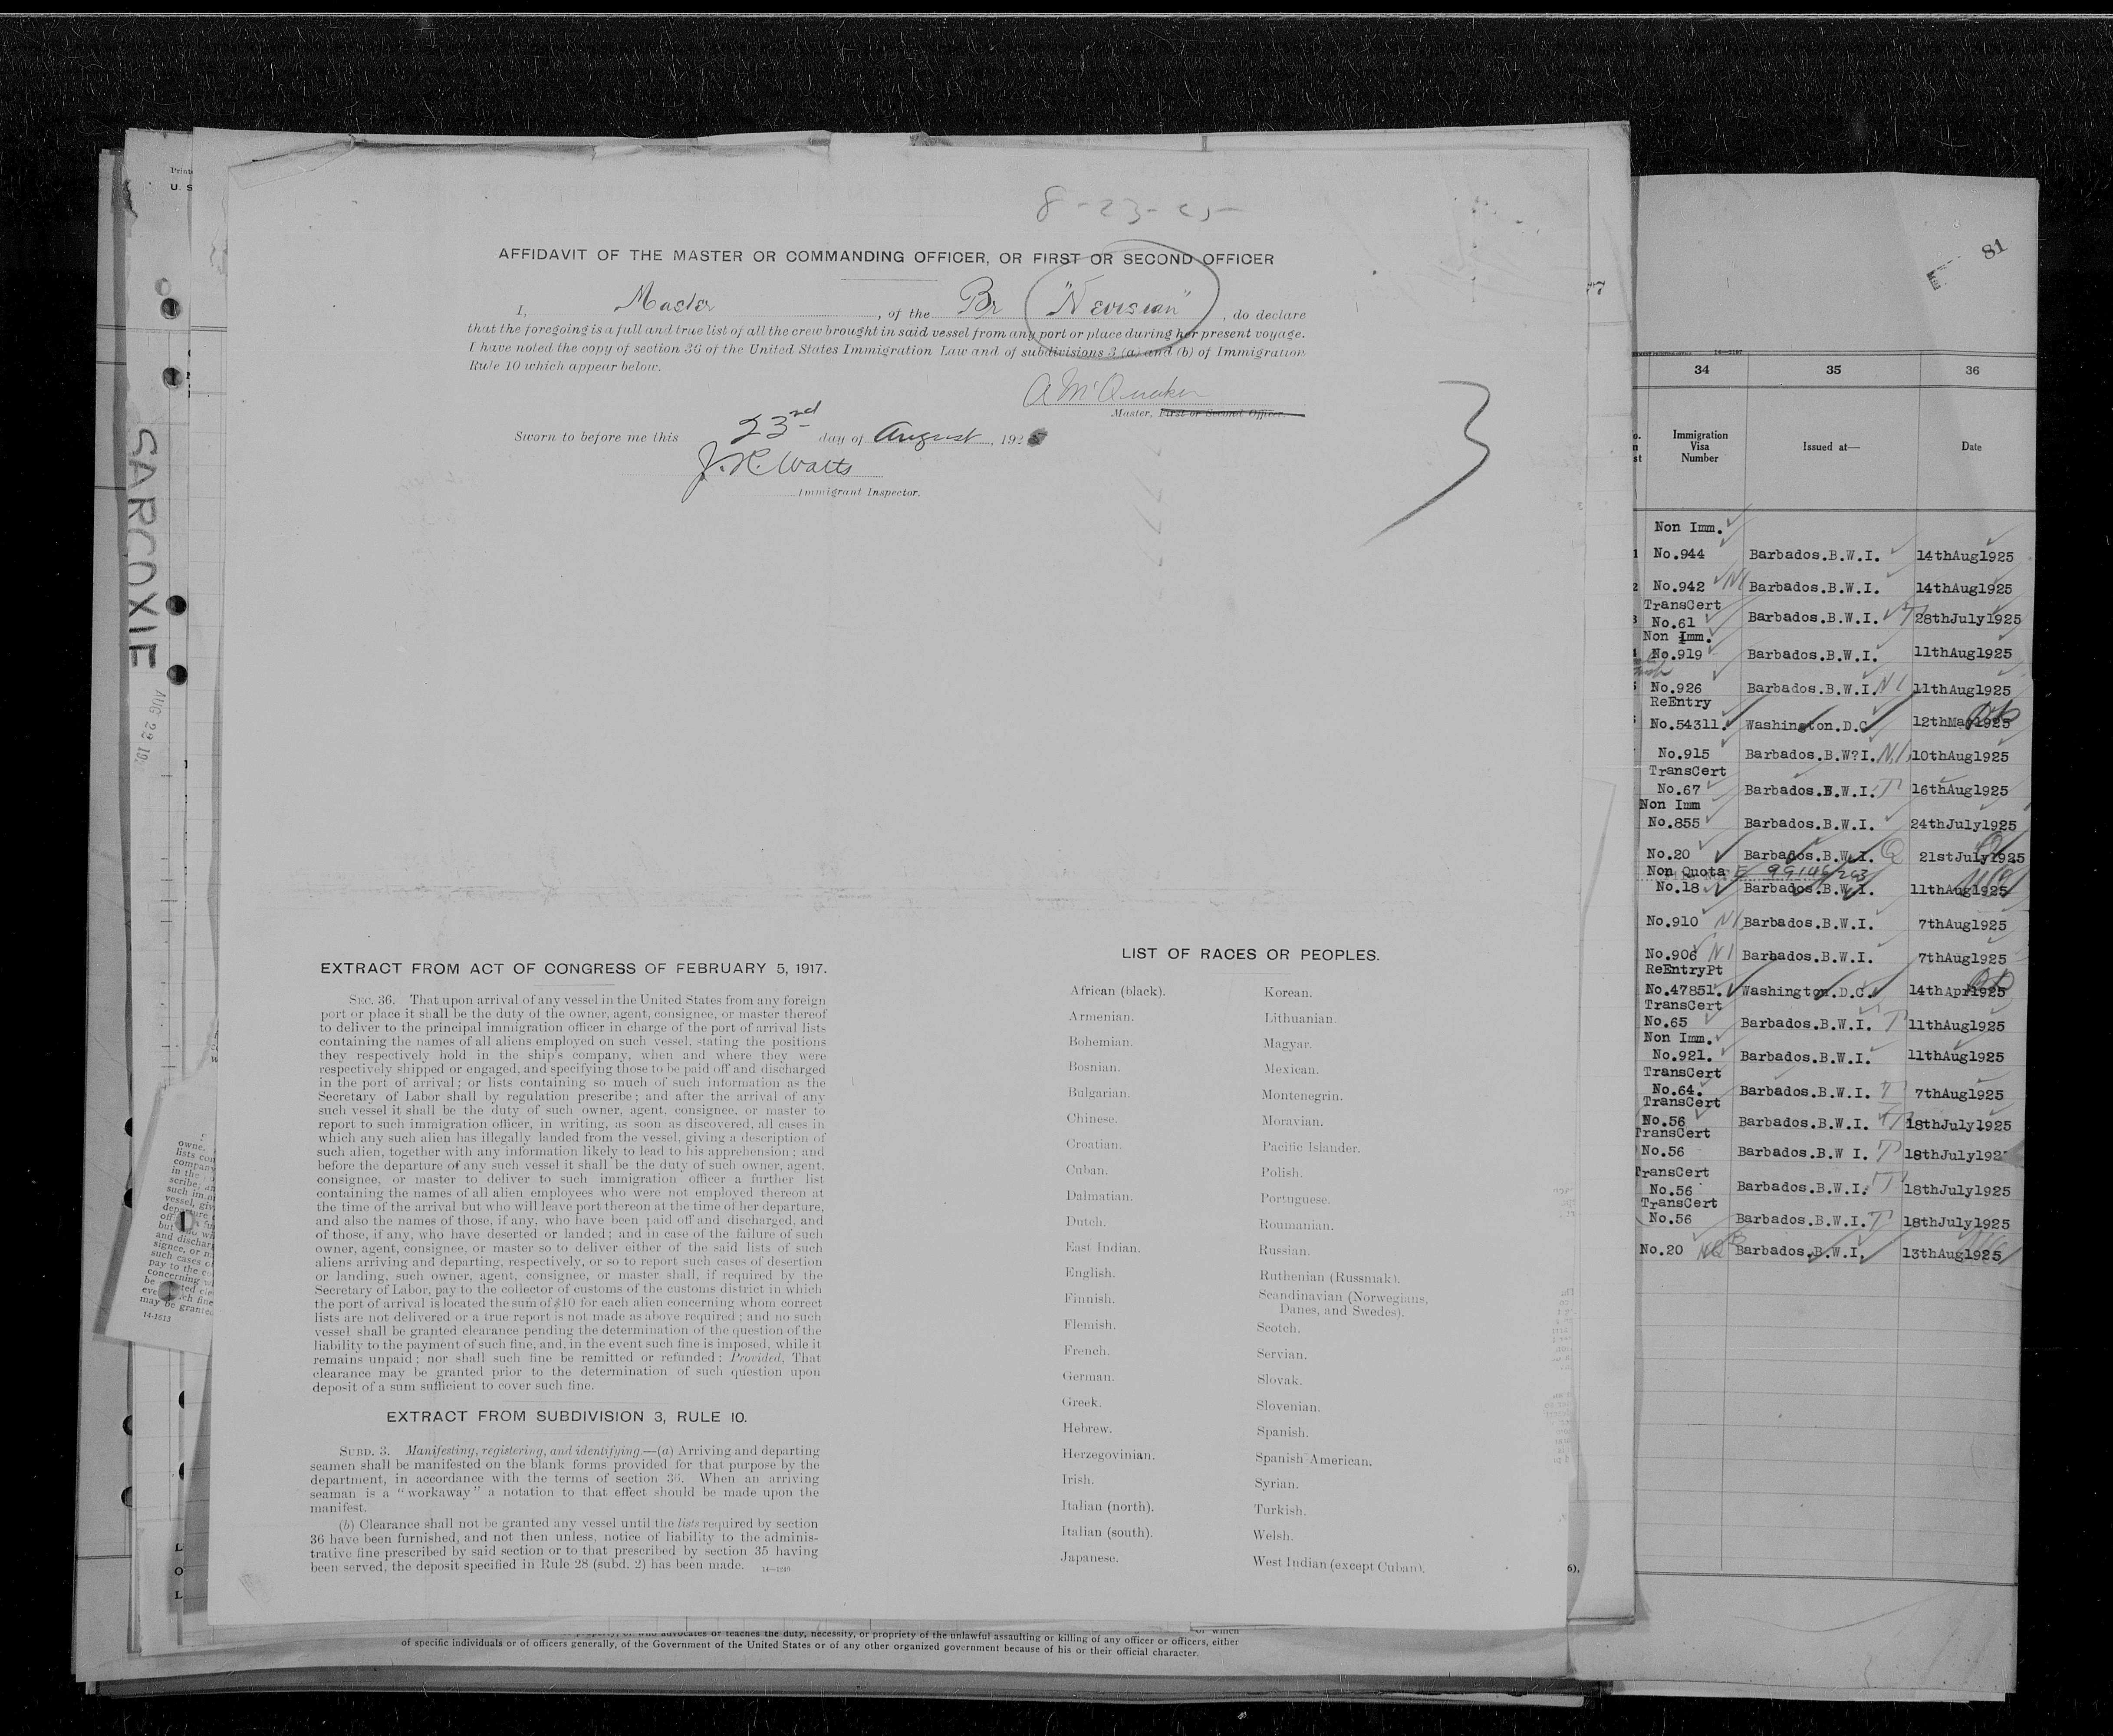 8-23-25
AFFIDAVIT OF THE MASTER OR COMMANDING OFFICER, OR FIRST OR SECOND OFFICER
I, Master, of the Br "Nevisian", do declare
that the foregoing is a full and true list of all the crew brought in said vessel from any port or place during her present voyage.
I have noted the copy of section 36 of the United States Immigration Law and of subdivisions 3 (a) and (b) of Immigration
Rule 10 which appear below.
A McQuaker
Master, First or Second Officer.
Sworn to before me this 23rd day of August, 1925
J. R. Watts
Immigrant Inspector.
3
EXTRACT FROM ACT OF CONGRESS OF FEBRUARY 5, 1917.
SEC. 36. That upon arrival of any vessel in the United States from any foreign
port or place it shall be the duty of the owner, agent, consignee, or master thereof
to deliver to the principal immigration officer in charge of the port of arrival lists
containing the names of all aliens employed on such vessel, stating the positions
they respectively hold in the ship's company, when and where they were
respectively shipped or engaged, and specifying those to be paid off and discharged
in the port of arrival; or lists containing so much of such information as the
Secretary of Labor shall by regulation prescribe; and after the arrival of any
such vessel it shall be the duty of such owner, agent, consignee, or master to
report to such immigration officer, in writing, as soon as discovered, all cases in
which any such alien has illegally landed from the vessel, giving a description of
such alien, together with any information likely to lead to his apprehension; and
before the departure of any such vessel it shall be the duty of such owner, agent,
consignee, or master to deliver to such immigration officer a further list
containing the names of all alien employees who were not employed thereon at
the time of the arrival but who will leave port thereon at the time of her departure,
and also the names of those, if any, who have been paid off and discharged, and
of those, if any, who have deserted or landed; and in case of the failure of such
owner, agent, consignee, or master so to deliver either of the said lists of such
aliens arriving and departing, respectively, or so to report such cases of desertion
or landing, such owner, agent, consignee, or master shall, if required by the
Secretary of Labor, pay to the collector of customs of the customs district in which
the port of arrival is located the sum of $10 for each alien concerning whom correct
lists are not delivered or a true report is not made as above required; and no such
vessel shall be granted clearance pending the determination of the question of the
liability to the payment of such fine, and, in the event such fine is imposed, while it
remains unpaid; nor shall such fine be remitted or refunded: Provided, That
clearance may be granted prior to the determination of such question upon
deposit of a sum sufficient to cover such fine.
EXTRACT FROM SUBDIVISION 3, RULE 10.
SUBD. 3. Manifesting, registering, and identifying.—(a) Arriving and departing
seamen shall be manifested on the blank forms provided for that purpose by the
department, in accordance with the terms of section 36. When an arriving
seaman is a "workaway" a notation to that effect should be made upon the
manifest.
(b) Clearance shall not be granted any vessel until the lists required by section
36 have been furnished, and not then unless, notice of liability to the adminis-
trative fine prescribed by said section or to that prescribed by section 35 having
been served, the deposit specified in Rule 28 (subd. 2) has been made. 14-1240
LIST OF RACES OR PEOPLES.
African (black).
Armenian.
Bohemian.
Bosnian.
Bulgarian.
Chinese.
Croatian.
Cuban.
Dalmatian.
Dutch.
East Indian.
English.
Finnish.
Flemish.
French.
German.
Greek.
Hebrew.
Herzegovinian.
Irish.
Italian (north).
Italian (south).
Japanese.
Korean.
Lithuanian.
Magyar.
Mexican.
Montenegrin.
Moravian.
Pacific Islander.
Polish.
Portuguese.
Roumanian.
Russian.
Ruthenian (Russniak).
Scandinavian (Norwegians,
Danes, and Swedes).
Scotch.
Servian.
Slovak.
Slovenian.
Spanish.
Spanish American.
Syrian.
Turkish.
Welsh.
West Indian (except Cuban).
of specific individuals or of officers generally, of the Government of the United States or of any other organized government because of his or their official character.
SARCOXIE
AUG 22 19
14-1613
81
34 35 36
Immigration
Visa
Number
Issued at—
Date
Non Imm.
1 No.944 Barbados.B.W.I. 14thAug1925
2 No.942 NI Barbados.B.W.I. 14thAug1925
TransCert
3 No.61 Barbados.B.W.I. T 28thJuly1925
Non Imm.
No.919 Barbados.B.W.I. 11thAug1925
No.926 Barbados.B.W.I. NI 11thAug1925
ReEntry
No.54311. Washington.D.C 12thMay1925
No.915 Barbados.B.W?I. NI 10thAug1925
TransCert
No.67 Barbados.B.W.I. T 16thAug1925
Non Imm
No.855 Barbados.B.W.I. 24thJuly1925
No.20 Barbados.B.W.I. Q 21stJuly1925
Non Quota 99146/263
No.18 Barbados.B.W.I. 11thAug1925
No.910 NI Barbados.B.W.I. 7thAug1925
No.906 NI Barbados.B.W.I. 7thAug1925
ReEntryPt
No.47851. Washington.D.C. 14thApr1925
TransCert
No.65 Barbados.B.W.I. T 11thAug1925
Non Imm.
No.921. Barbados.B.W.I. 11thAug1925
TransCert
No.64. Barbados.B.W.I. T 7thAug1925
TransCert
No.56 Barbados.B.W.I. T 18thJuly1925
TransCert
No.56 Barbados.B.W I. T 18thJuly192
TransCert
No.56 Barbados.B.W.I. T 18thJuly1925
TransCert
No.56 Barbados.B.W.I. T 18thJuly1925
No.20 Barbados.B.W.I. 13thAug1925